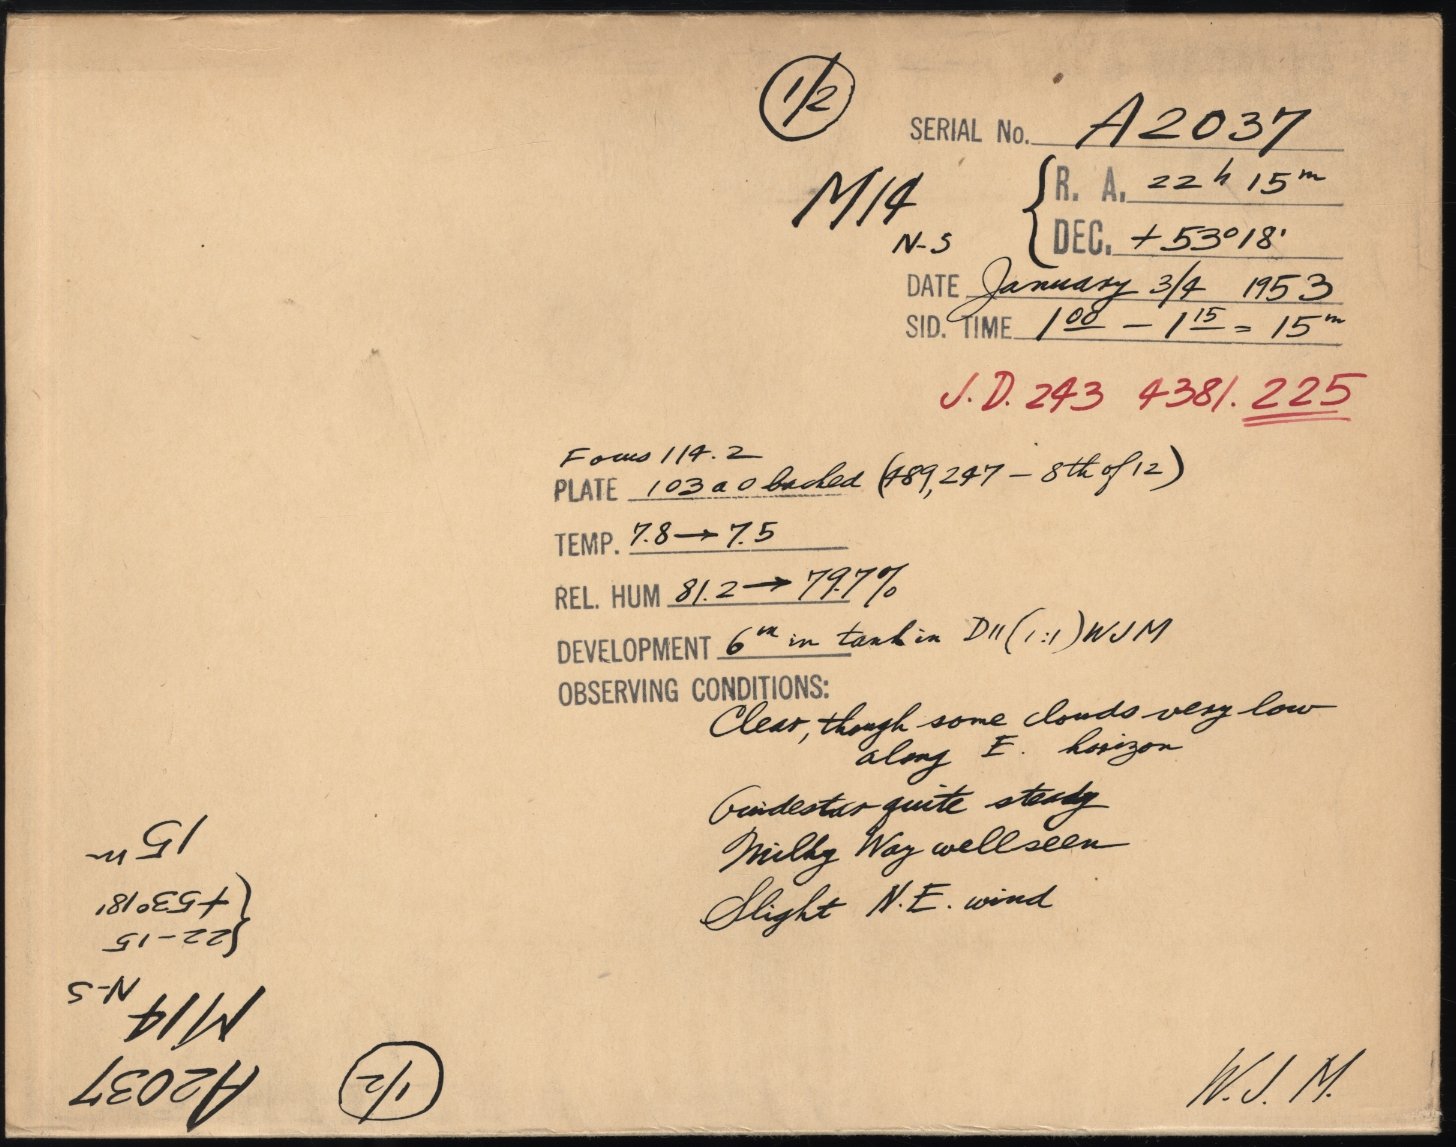 1/2
SERIAL No. A2037
M14
N-S
R. A. 22h 15m
DEC. +53°18'
DATE January 3/4 1953
SID. TIME 1 00 – 1 15 = 15m
J.D. 243 4381.225
Focus 114.2
PLATE 103a0 backed (489,247 – 8th of 12)
TEMP. 7.8 → 7.5
REL. HUM 81.2 → 79.7%
DEVELOPMENT 6m in tank in D11 (1:1) WJM
OBSERVING CONDITIONS:
Clear, though some clouds very low
along E. horizon
Guidestar quite steady
Milky Way well seen
Slight N.E. wind
W. J. M.
1/2
A2037
M14
N-S
22-15
+53°18'
15m